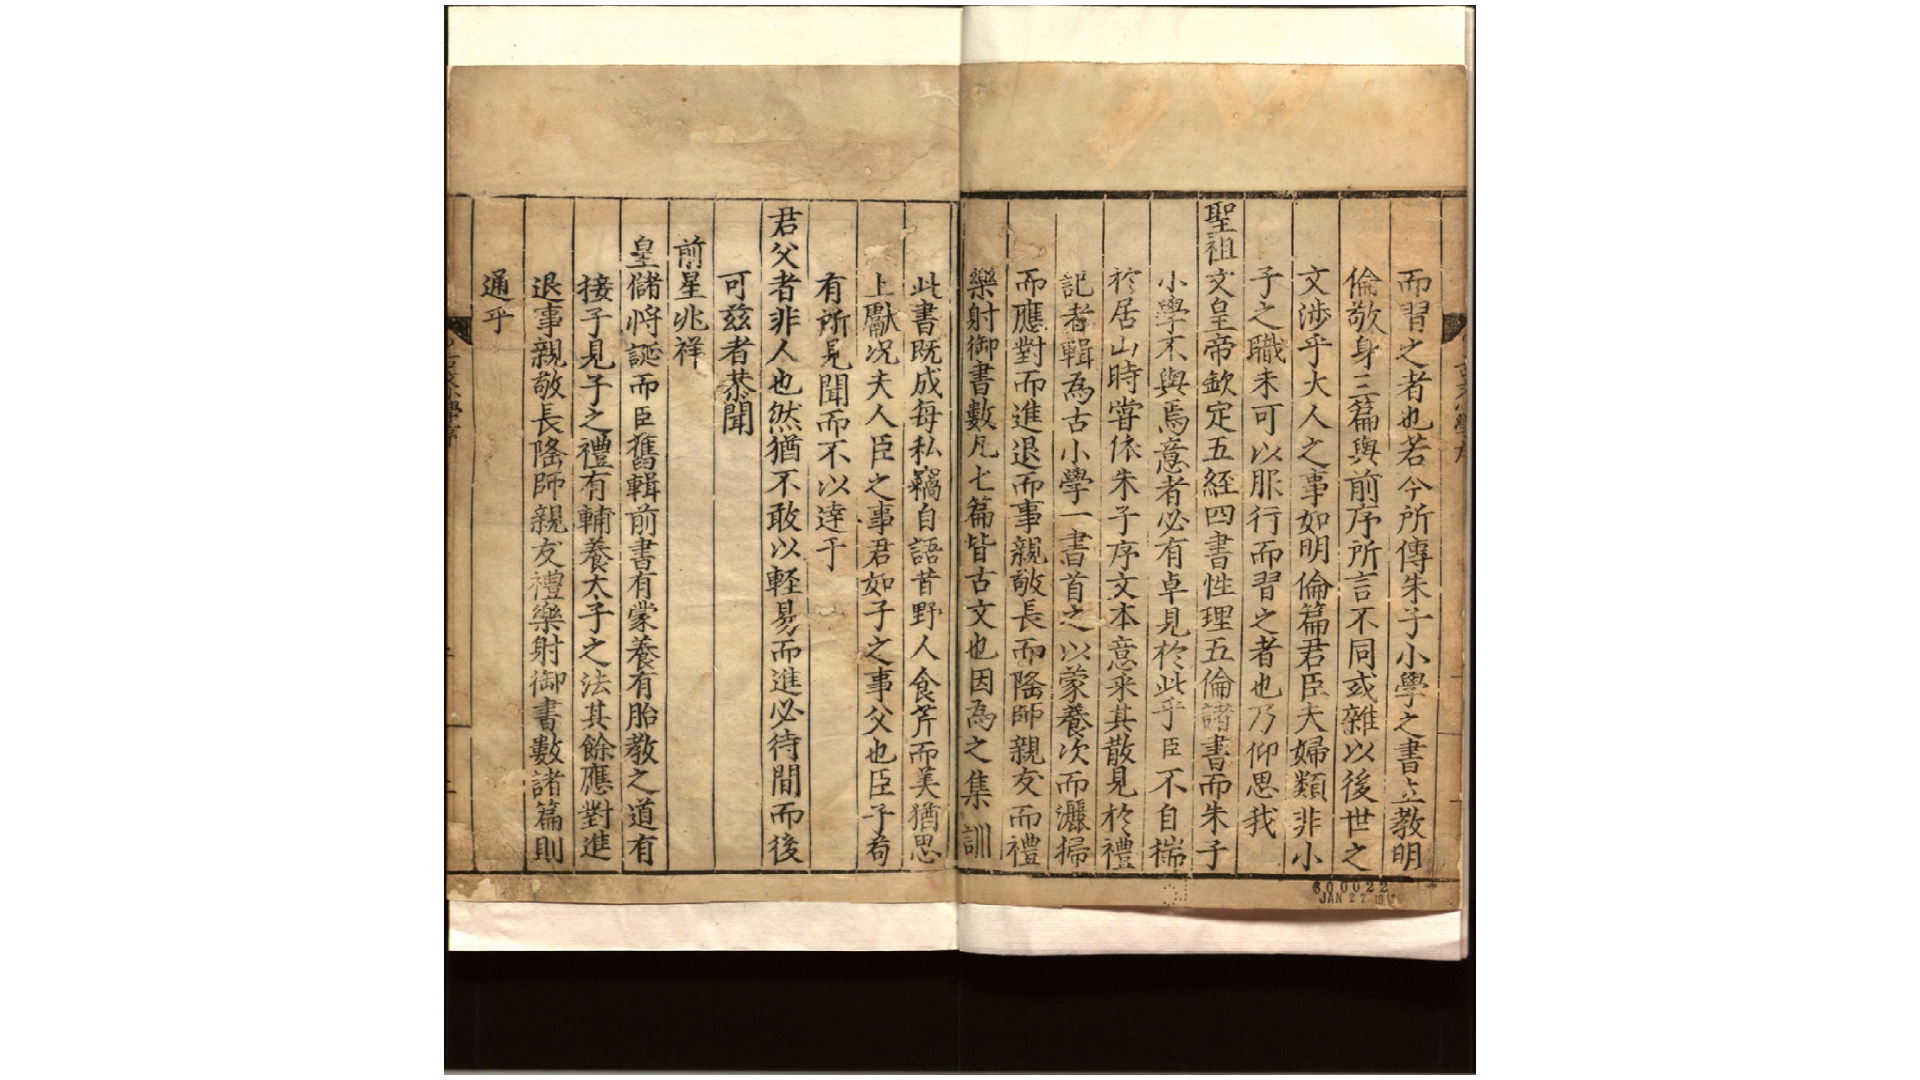 而習之者也若今所傳朱子小學之書立教明
倫敬身三篇與前序所言不同或雜以後世之
文涉乎大人之事如明倫篇君臣夫婦類非小
子之職未可以服行而習之者也乃仰思我
聖祖文皇帝欽定五經四書性理五倫諸書而朱子
小學不與焉意者必有卓見於此乎臣不自揣
於居山時嘗依朱子序文本意采其散見於禮
記者輯為古小學一書首之以蒙養次而灑掃
而應對而進退而事親敬長而隆師親友而禮
樂射御書數凡七篇皆古文也因為之集訓
此書既成每私竊自語昔野人食芹而美猶思
上獻况夫人臣之事君如子之事父也臣子苟
有所見聞而不以達于
君父者非人也然猶不敢以輕易而進必待間而後
可兹者恭聞
前星兆祥
皇儲將誕而臣舊輯前書有蒙養有胎教之道有
接子見子之禮有輔養太子之法其餘應對進
退事親敬長隆師親友禮樂射御書數諸篇則
通乎
600022
JAN 27